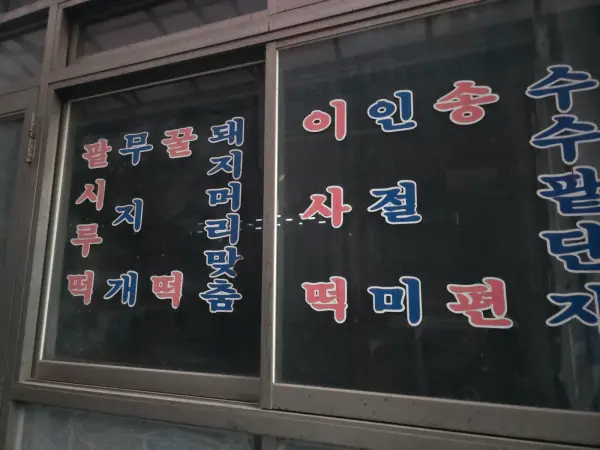 팥시루떡
무지개
꿀떡
돼지머리맞춤
이사떡
인절미
송편
수수팥단지